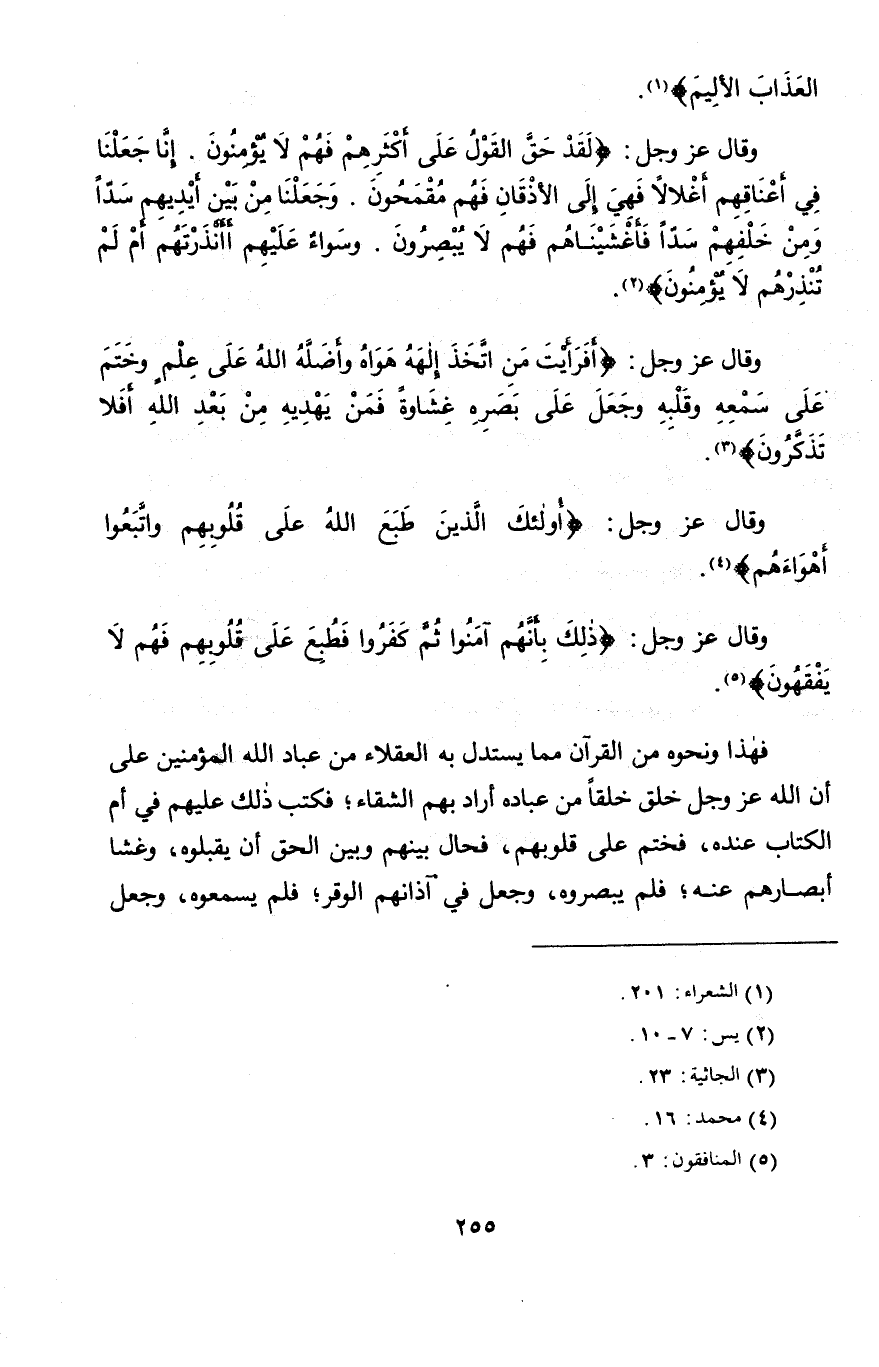 العَذَابَ الأَلِيمَ﴾(١).
وقال عز وجل: ﴿لَقَدْ حَقَّ القَوْلُ عَلَى أَكْثَرِهِمْ فَهُمْ لَا يُؤْمِنُونَ . إِنَّا جَعَلْنَا
فِي أَعْنَاقِهِم أَغْلالاً فَهِيَ إِلَى الأَذْقَانِ فَهُم مُقْمَحُونَ . وَجَعَلْنَا مِنْ بَيْنِ أَيْدِيهِم سَدّاً
وَمِنْ خَلْفِهِمْ سَدّاً فَأَغْشَيْنَاهُم فَهُم لَا يُبْصِرُونَ . وسَواءٌ عَلَيْهِم أَأَنْذَرْتَهُم أَمْ لَمْ
تُنْذِرْهُم لَا يُؤْمِنُونَ﴾(٢).
وقال عز وجل: ﴿أَفَرَأَيْتَ مَن اتَّخَذَ إِلٰهَهُ هَوَاهُ وأَضَلَّهُ اللهُ عَلَى عِلْمٍ وخَتَمَ
عَلَى سَمْعِهِ وقَلْبِهِ وجَعَلَ عَلَى بَصَرِهِ غِشاوةً فَمَنْ يَهْدِيهِ مِنْ بَعْدِ اللهِ أَفَلا
تَذَكَّرُونَ﴾(٣).
وقال عز وجل: ﴿أُولٰئكَ الَّذينَ طَبَعَ اللهُ علَى قُلُوبِهِم واتَّبَعُوا
أَهْوَاءَهُم﴾(٤).
وقال عز وجل: ﴿ذٰلِكَ بِأَنَّهُم آمَنُوا ثُمَّ كَفَرُوا فَطُبِعَ عَلَى قُلُوبِهِم فَهُم لَا
يَفْقَهُونَ﴾(٥).
فهٰذا ونحوه من القرآن مما يستدل به العقلاء من عباد الله المؤمنين على
أن الله عز وجل خلق خلقاً من عباده أراد بهم الشقاء؛ فكتب ذٰلك عليهم في أم
الكتاب عنده، فختم على قلوبهم، فحال بينهم وبين الحق أن يقبلوه، وغشا
أبصارهم عنه؛ فلم يبصروه، وجعل في آذانهم الوقر؛ فلم يسمعوه، وجعل
(١) الشعراء: ٢٠١.
(٢) يس: ٧ - ١٠.
(٣) الجاثية: ٢٣.
(٤) محمد: ١٦.
(٥) المنافقون: ٣.
٢٥٥